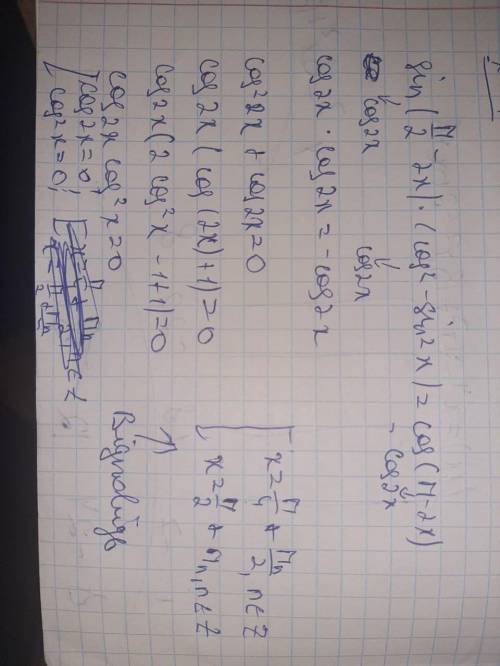 sin(π/2 - 2x) · (cos² - sin²x) = cos(π - 2x)
cos2x cos2x - cos2x
cos2x · cos2x = - cos2x
cos²2x + cos2x = 0
cos2x (cos(2x) + 1) = 0
cos2x (2cos²x - 1 + 1) = 0
cos2x cos²x = 0
[ cos2x = 0;
cos²x = 0;
[ x = π/4 + πn/2, n ∈ Z
x = π/2 + πn, n ∈ Z
↑
Відповідь